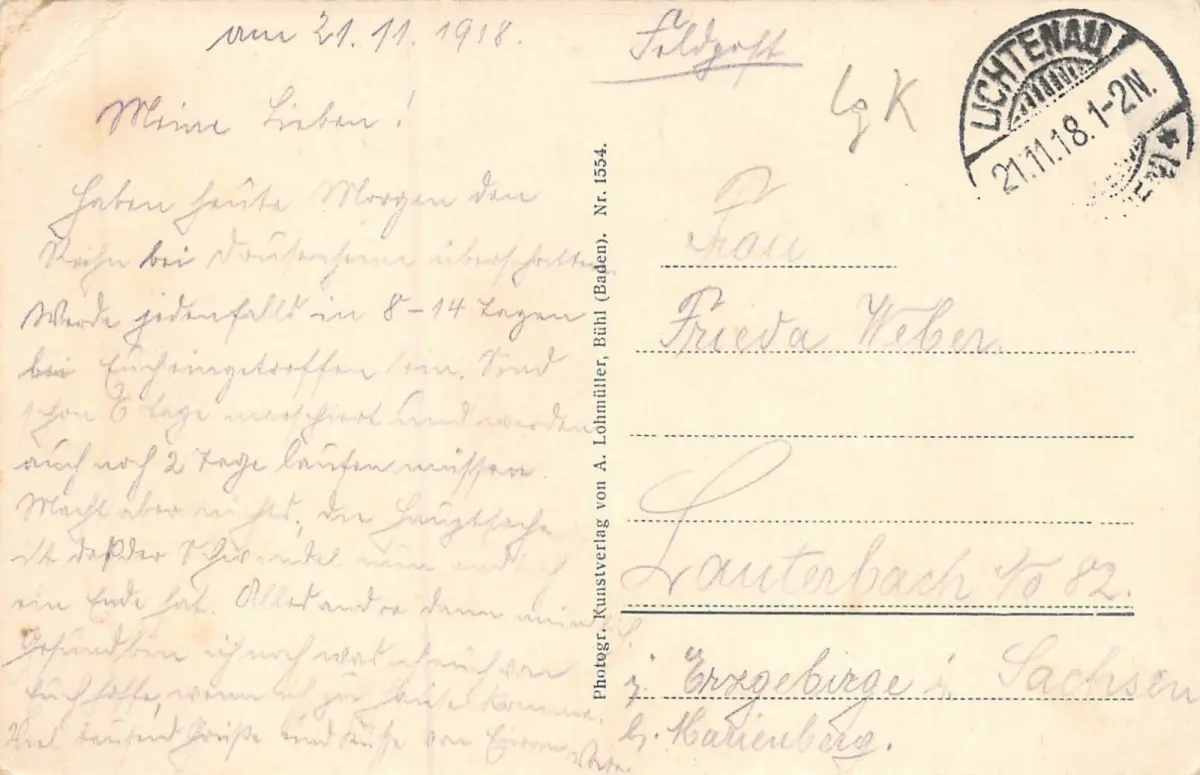 am 21.11.1918.
Meine Lieben!
Haben heute Morgen den
Rhein bei Drusenheim überschritten.
Werde jedenfalls in 8-14 Tagen
bei Euch eingetroffen sein. Sind
schon 6 Tage marschiert und werden
auch noch 2 Tage laufen müssen.
Macht aber nichts, die Hauptsache
ist daß der Schwindel nun endlich
ein Ende hat. Alles andre dann mündlich
Gesund bin ich noch was ich auch von
Euch hoffe, wenn ich zu Hause komme.
Viel tausend Grüße und Küsse von Eurem
Feldpost
LgK
LICHTENAU
21.11.18.1-2N.
Frau
Frieda Weber
Lauterbach N 82.
i. Erzgebirge i. Sachsen
b. Marienberg.
Photogr. Kunstverlag von A. Lohmüller, Bühl (Baden). Nr. 1554.